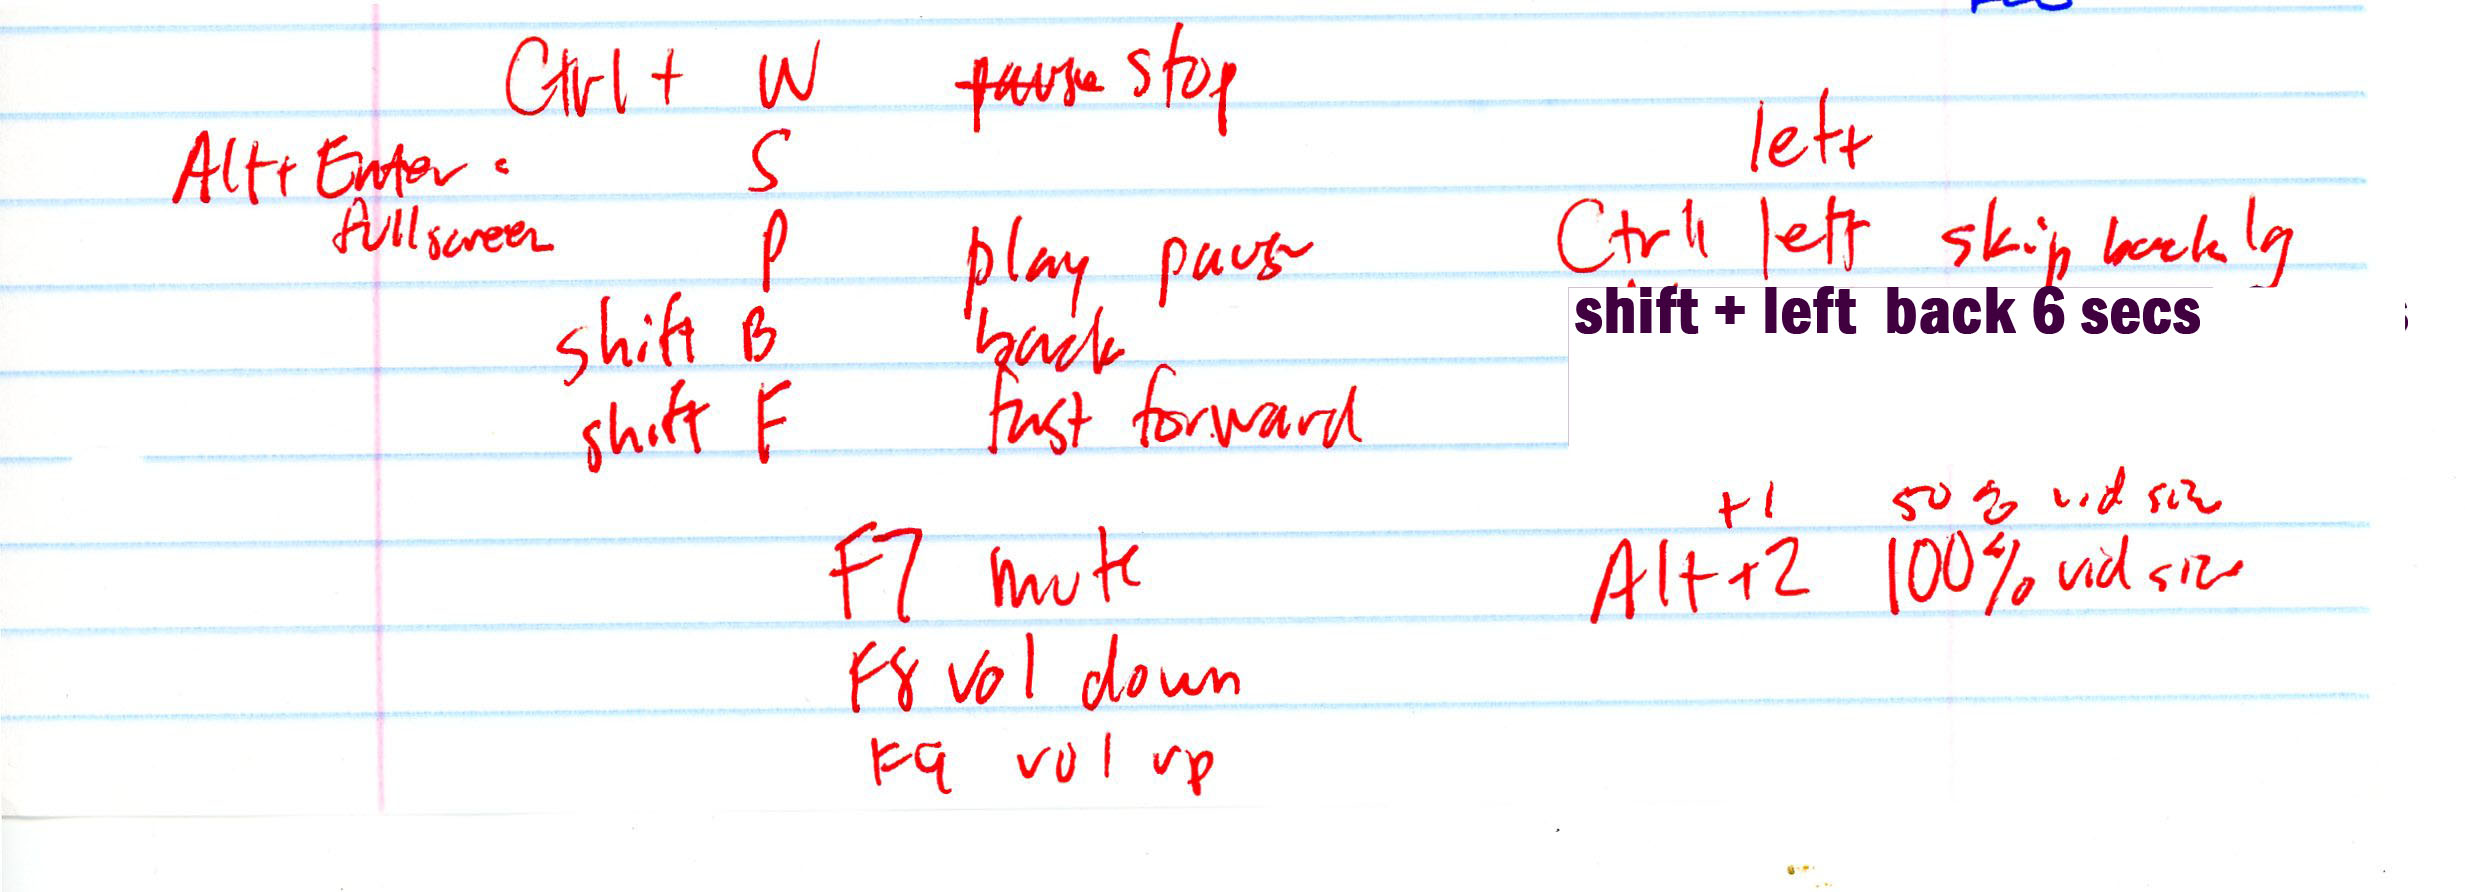 Ctrl + W pause stop
left
Alt + Enter :
S
fullscreen
P play pause
Ctrl left skip back lg
shift B back
shift + left back 6 secs
shift F fast forward
+1 50% vid size
F7 mute
Alt +2 100% vid size
F8 vol down
F9 vol up